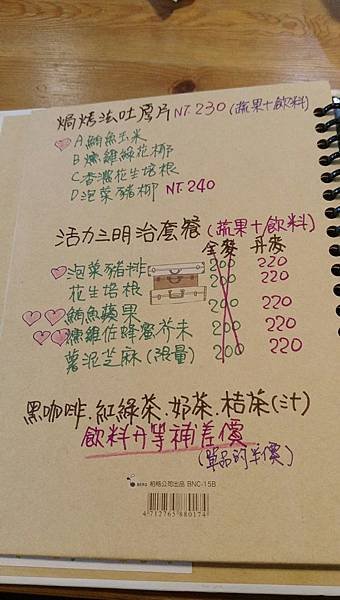 焗烤法吐厚片 NT.230 (蔬果+飲料)
A 鮪魚玉米
B 燻雞綠花椰
C 香濃花生培根
D 泡菜豬柳 NT.240
活力三明治套餐 (蔬果+飲料)
全麥 丹麥
泡菜豬排 200 220
花生培根 200 220
鮪魚蘋果 200 220
燻雞佐蜂蜜芥末 200 220
薯泥芝麻(限量) 200 220
黑咖啡.紅綠茶.奶茶.桔茶(汁)
飲料升等補差價
(單品的半價)
BERG 柏格公司出品 BNC-15B
4712765880174